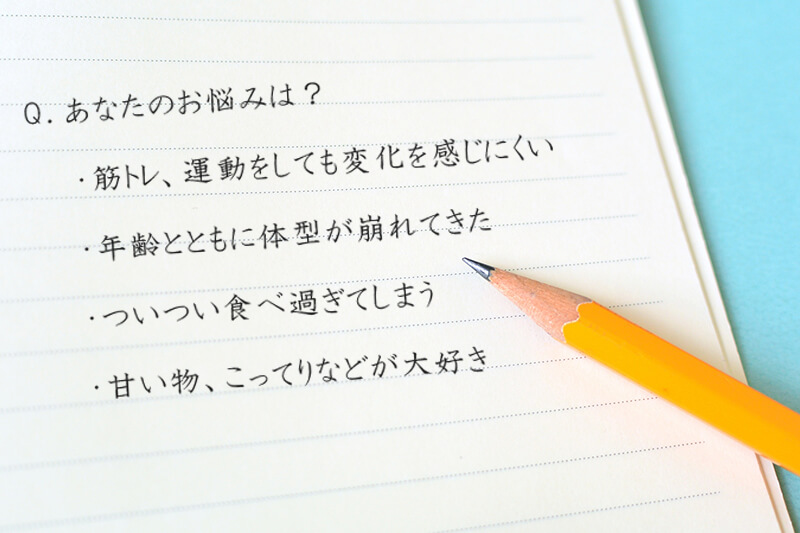 Q. あなたのお悩みは？
・筋トレ、運動をしても変化を感じにくい
・年齢とともに体型が崩れてきた
・ついつい食べ過ぎてしまう
・甘い物、こってりなどが大好き